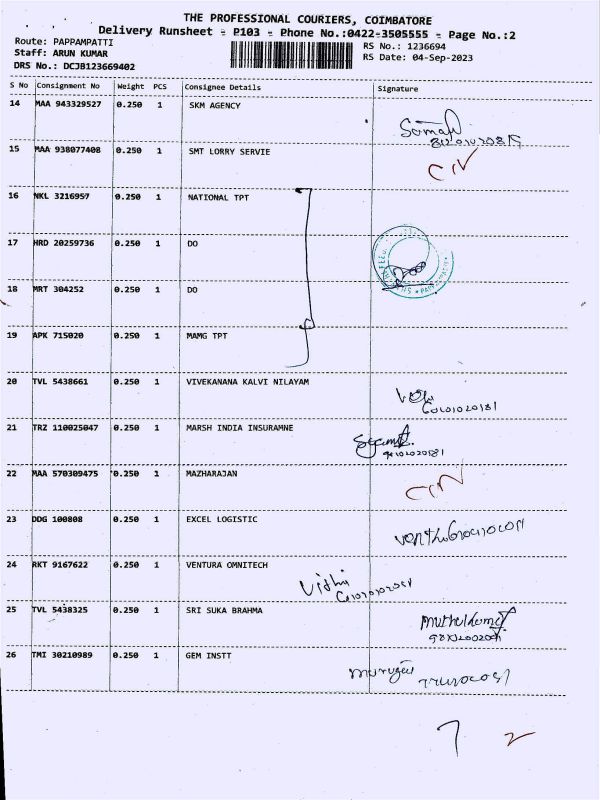 THE PROFESSIONAL COURIERS, COIMBATORE
Delivery Runsheet - P103 - Phone No.:0422-3505555 - Page No.:2
Route: PAPPAMPATTI
Staff: ARUN KUMAR
DRS No.: DCJB123669402
RS No.: 1236694
RS Date: 04-Sep-2023
S No Consignment No Weight PCS Consignee Details Signature
14 MAA 943329527 0.250 1 SKM AGENCY
15 MAA 938077408 0.250 1 SMT LORRY SERVIE
16 NKL 3216957 0.250 1 NATIONAL TPT
17 HRD 20259736 0.250 1 DO
18 MRT 304252 0.250 1 DO
19 APK 715020 0.250 1 MAMG TPT
20 TVL 5438661 0.250 1 VIVEKANANA KALVI NILAYAM
21 TRZ 110025047 0.250 1 MARSH INDIA INSURAMNE
22 MAA 570309475 0.250 1 MAZHARAJAN
23 DDG 100808 0.250 1 EXCEL LOGISTIC
24 RKT 9167622 0.250 1 VENTURA OMNITECH
25 TVL 5438325 0.250 1 SRI SUKA BRAHMA
26 TMI 30210989 0.250 1 GEM INSTT
7 2